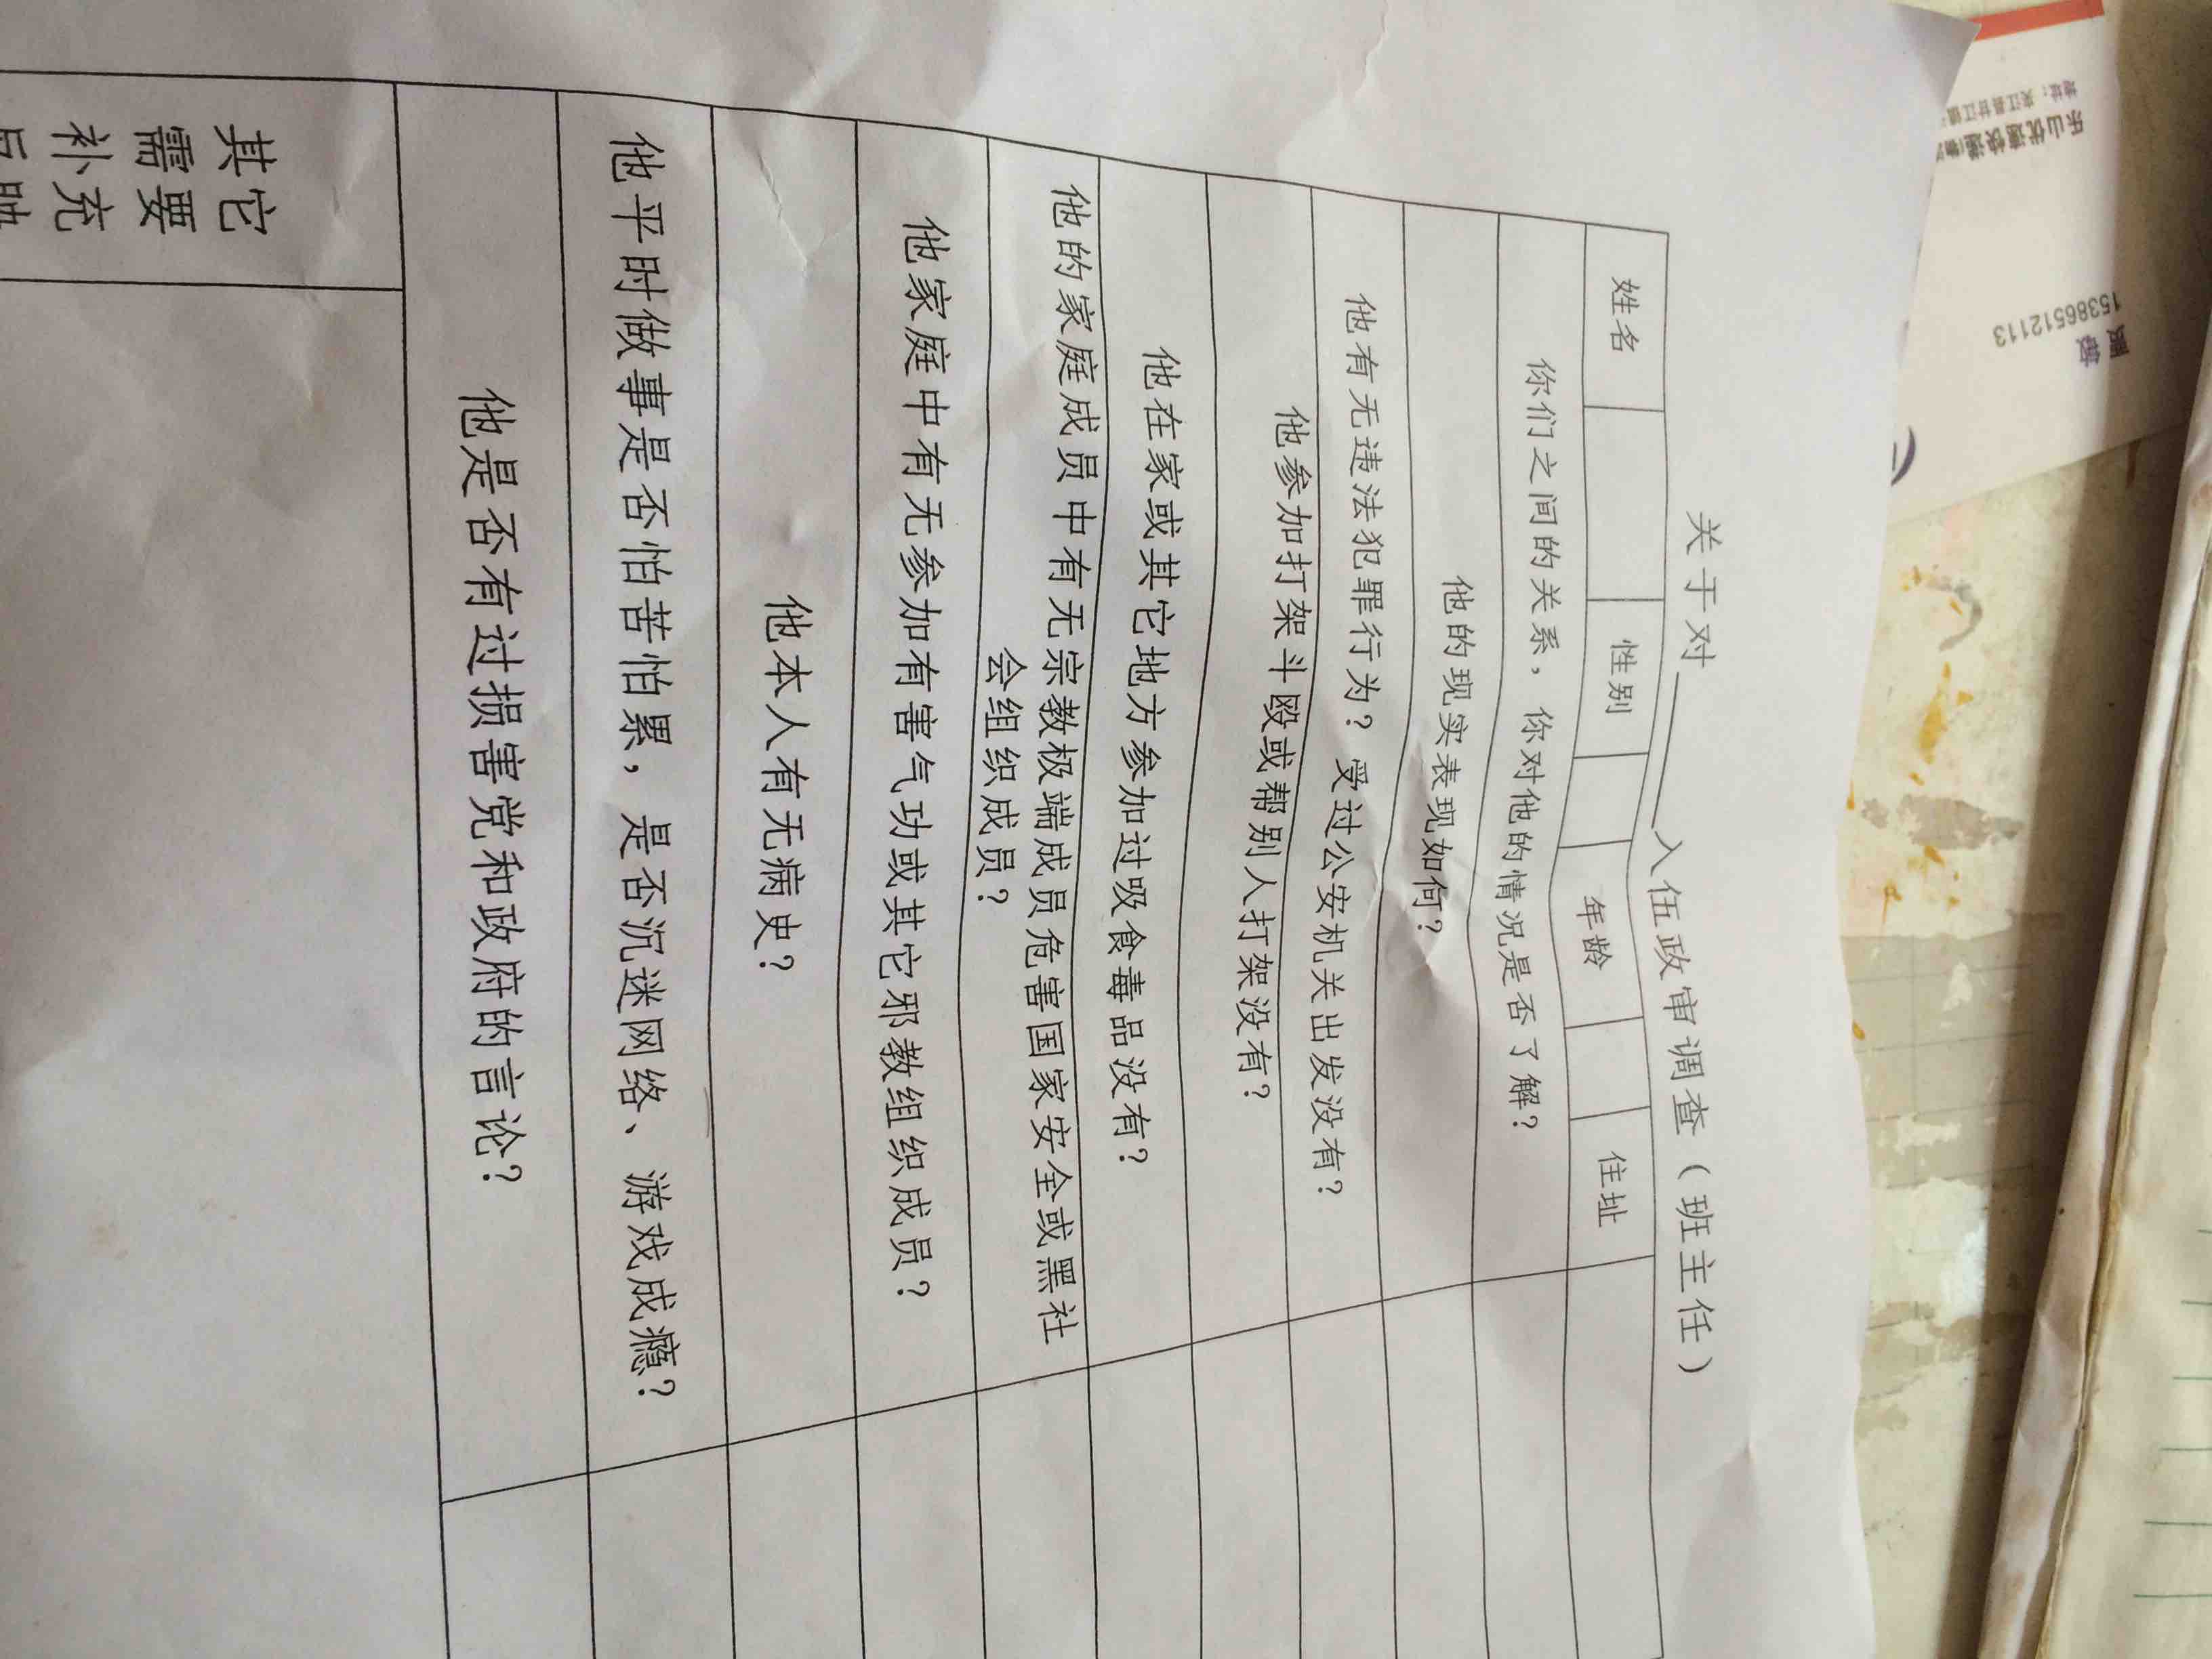 关于对______入伍政审调查（班主任）
姓名 性别 年龄 住址
你们之间的关系，你对他的情况是否了解？
他的现实表现如何？
他有无违法犯罪行为？受过公安机关出发没有？
他参加打架斗殴或帮别人打架没有？
他在家或其它地方参加过吸食毒品没有？
他的家庭成员中有无宗教极端成员危害国家安全或黑社
会组织成员？
他家庭中有无参加有害气功或其它邪教组织成员？
他本人有无病史？
他平时做事是否怕苦怕累，是否沉迷网络、游戏成瘾？
他是否有过损害党和政府的言论？
其它
需要
补充
乐山优速快递
地址：夹江县甘江镇
15386512113